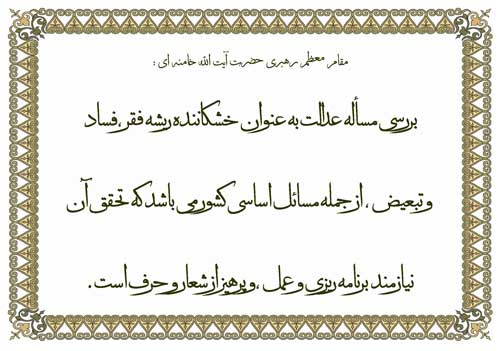 مقام معظم رهبری حضرت آیت الله خامنه ای :
بررسی مسأله عدالت به عنوان خشکاننده ریشه فقر، فساد
و تبعیض ، از جمله مسائل اساسی کشور می باشد که تحقق آن
نیازمند برنامه ریزی و عمل ، و پرهیز از شعار و حرف است .